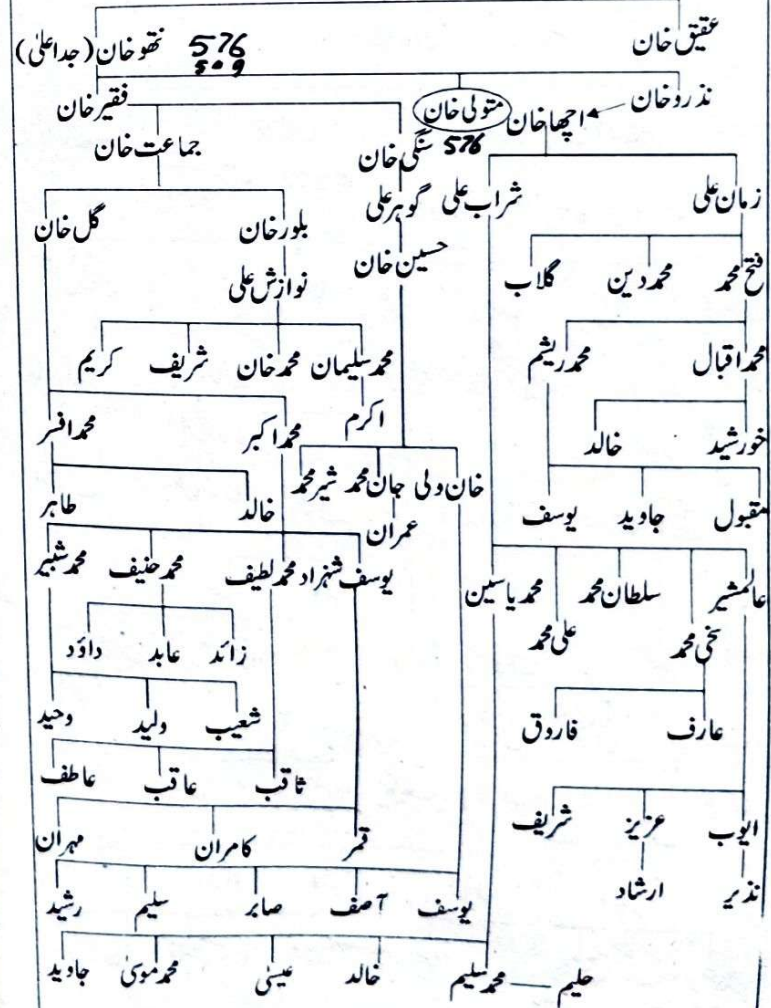 عقیق خان 576 نتھو خان (جد اعلیٰ)
509
نذرو خان متولی خان فقیر خان
اچھا خان 576 سنگی خان جماعت خان
زمان علی شراب علی گوہر علی بلور خان گل خان
فتح محمد محمد دین گلاب حسین خان نوازش علی
محمد اقبال محمد ریشم محمد سلیمان محمد خان شریف کریم
خورشید خالد اکرم محمد اکبر محمد افسر
مقبول جاوید یوسف خان ولی جان محمد شیر محمد خالد طاہر
عمران
عالمشیر سلطان محمد محمد یاسین یوسف شہزاد محمد لطیف محمد حنیف محمد شبیر
سخی محمد علی محمد زائد عابد داؤد
عارف فاروق شعیب ولید وحید
ثاقب عاقب عاطف
ایوب عزیز شریف قمر کامران مہران
نذیر ارشاد یوسف آصف صابر سلیم رشید
حلیم محمد سلیم خالد عیسیٰ محمد موسیٰ جاوید